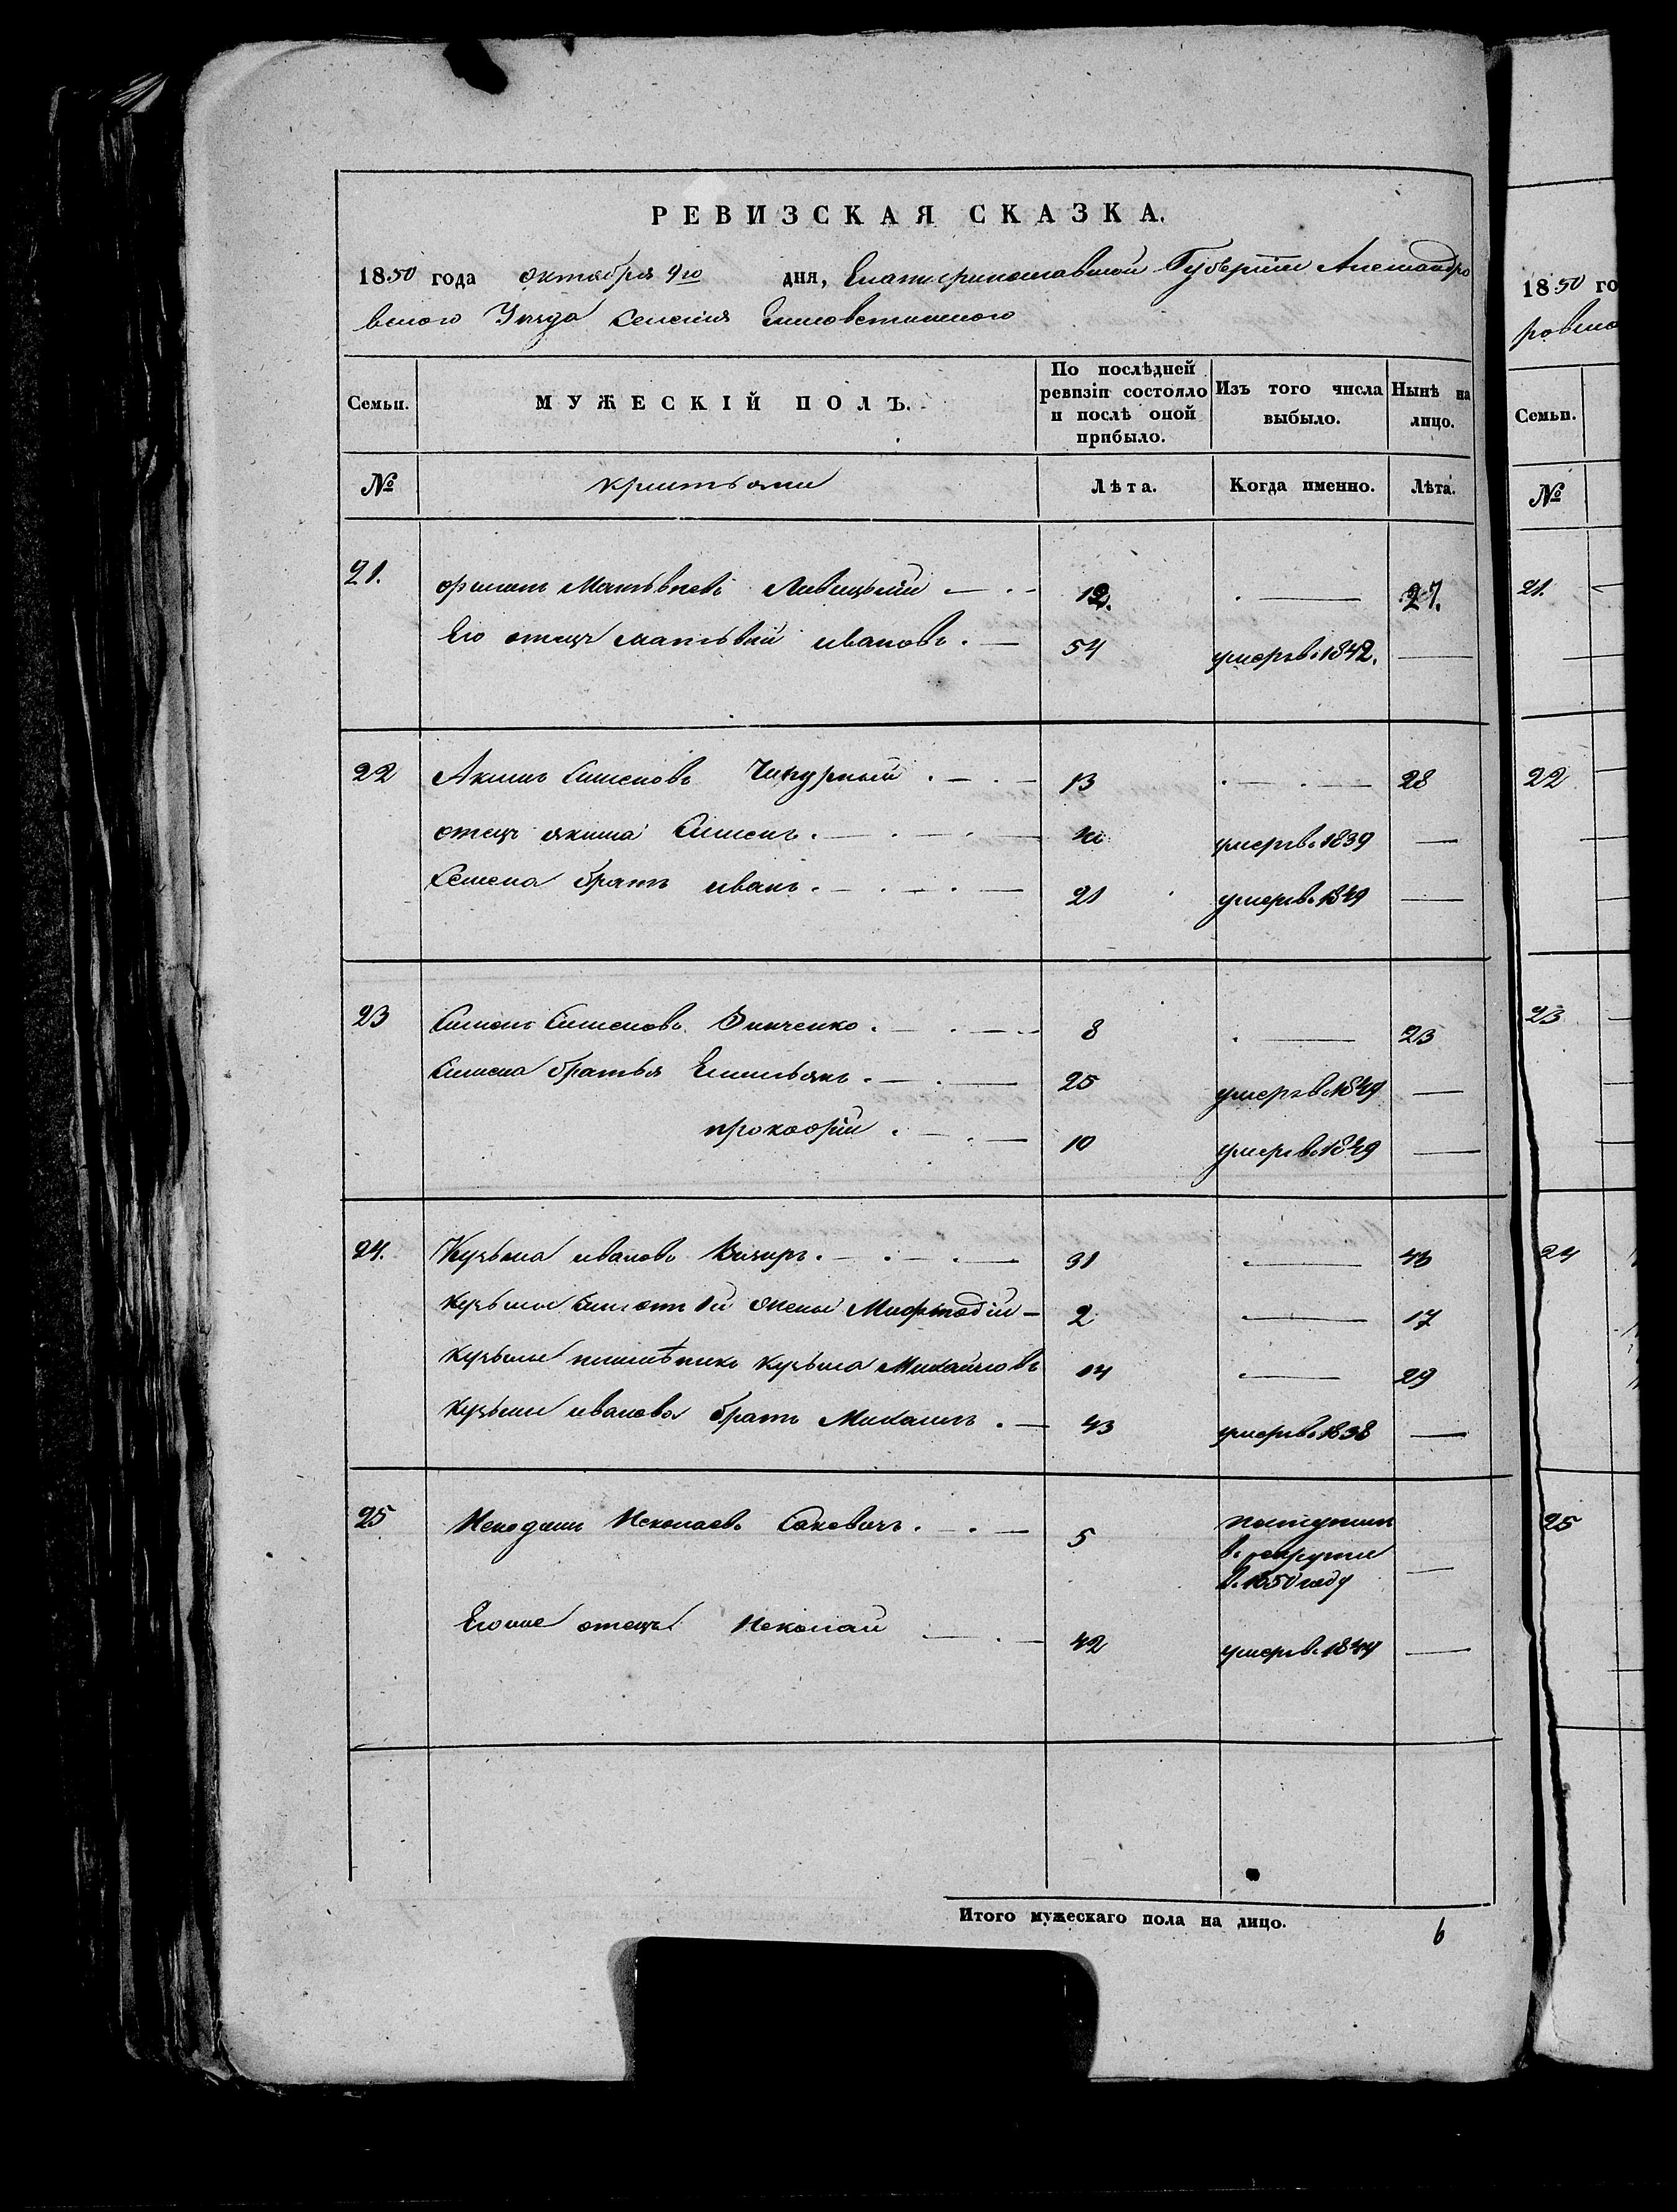 РЕВИЗСКАЯ СКАЗКА.
1850 года октября 9го дня, Екатеринославской Губернии Александро
вского Уезда селения Елисаветинского
Семьи. МУЖЕСКІЙ ПОЛЪ. По послѣдней ревизіи состояло и послѣ оной прибыло. Изъ того числа выбыло. Нынѣ на лицо.
№ крестьяне Лѣта. Когда именно. Лѣта.
21. Матвѣевъ Ливицькій 12. 27.
Его отецъ матвѣй ивановъ 54 умеръ в. 1842.
22 Акимъ Семеновъ Чепурный 13 28
отецъ якима Семенъ умеръ в. 1839
Семена братъ иванъ 21 умеръ в. 1849
23 Семеновъ Зинченко 8 23
братья Емельянъ 25 умеръ в. 1849
прокофій 10 умеръ в. 1849
24. Кузьма ивановъ 31 46
Кузьмы сынъ отъ 1й жены Мефтодій 2 17
Кузьмы племѣникъ Кузьма Михайловъ 14 29
Кузьмы иванова братъ Михаилъ 43 умеръ в. 1838
25 Николаевъ Саковичъ 5 поступилъ
в. рекруты
в. 1850 году
Его же отецъ Николай 42 умеръ в. 1844
Итого мужескаго пола на лицо. 6
1850 го
ровско
Семьи.
№
21.
22
23
24
25